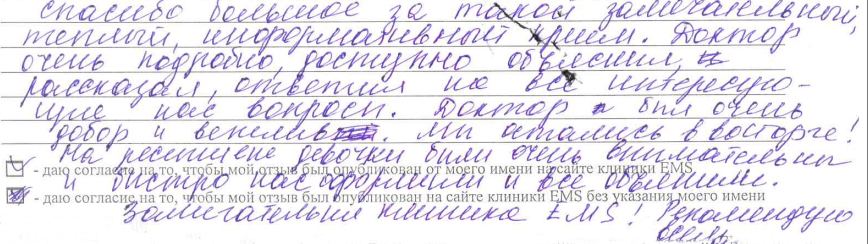 Спасибо большое за такой замечательный,
теплый, информативный прием. Доктор
очень подробно, доступно объяснил,
рассказал, ответил на все интересую-
щие нас вопросы. Доктор был очень
добор и вежлив. Мы остались в восторге!
На ресепшене девочки были очень внимательны
- даю согласие на то, чтобы мой отзыв был опубликован от моего имени на сайте клиники EMS
и быстро нас оформили и все объяснили.
- даю согласие на то, чтобы мой отзыв был опубликован на сайте клиники EMS без указания моего имени
Замечательная клиника EMS! Рекомендую
всем.